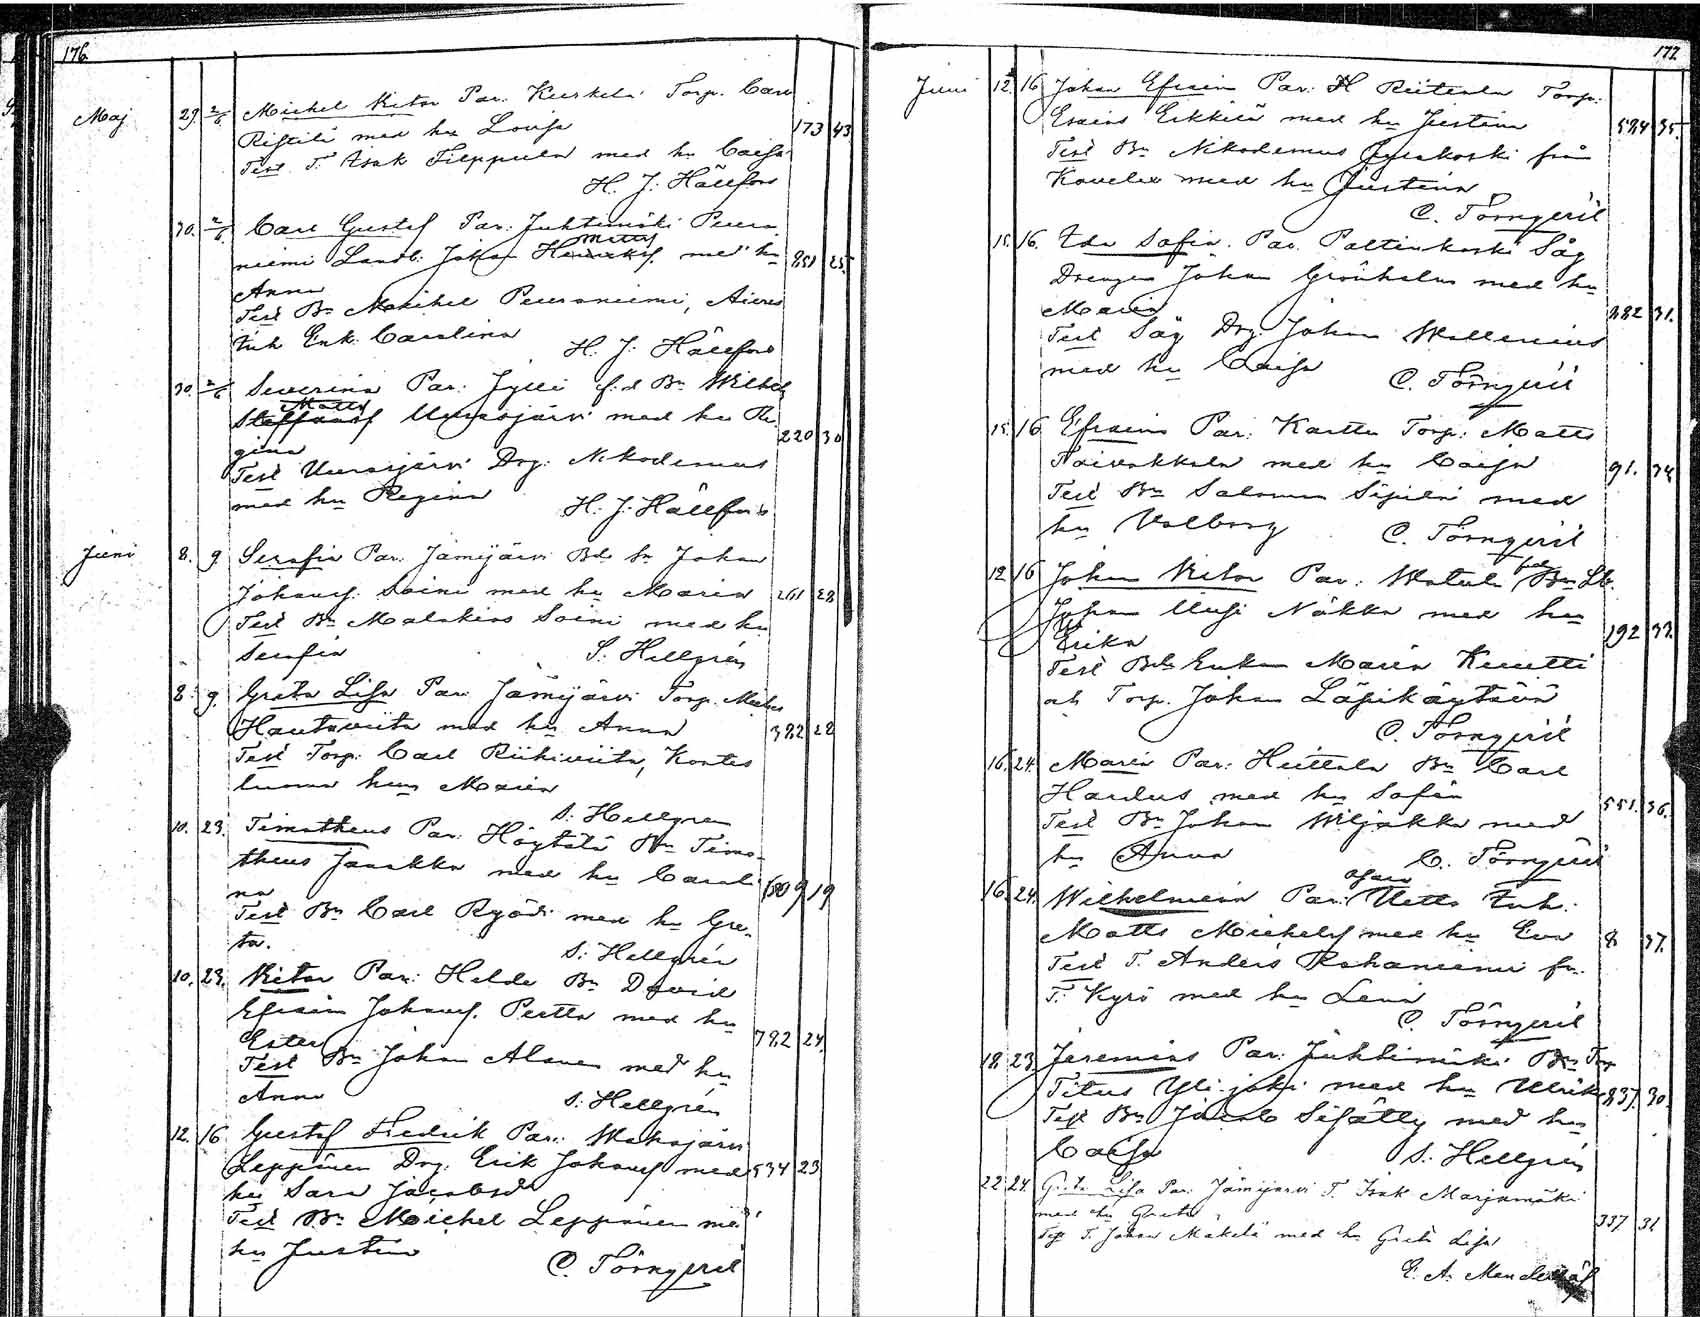 176.
Maj 29. 2/6 Michel Victor Par: Kuskela Torp. Carl
Ristili med hu Lovisa 173 43
Test T. Isak Filppula med hu Caisa
H. J. Hällfors
30. 2/6 Carl Gustaf Par: Juhtimäki Peura
niemi Landb: Johan Henriksf med hu 851 25
Matts
Anna
Test Bn Michel Peuraniemi,
Inh Enk. Carolina H. J. Hällfors
30. 2/6 Severina Par: Jylli f.d Bn Wilh
Matts
Staffansf Uurasjärvi med hu Re
gina 220 30
Test Uurasjärvi Drg: Nikodemus
med hu Regina H. J. Hällfors
Juni 8. 9. Serafia Par: Jämijärvi Bd Sn Johan
Johansf. Soini med hu Maria 261 28
Test Bn Malakias Soini med hu
Serafia S. Hellgrén
8. 9. Greta Lisa Par: Jämijärvi Torp. Michel
Hautaviita med hu Anna 382 28
Test Torp. Carl Riihiviita, Kontes
luoma hust Maria
S: Hellgren
10. 23. Timotheus Par: Höytölä Bn Timo-
theus Jaakka med hu Caroli
na 19
Test Bn Carl Ryödi med hu Gre-
ta. S: Hellgrén
10. 23. Victor Par: Helde Bn David
Efraim Johansf. Pertta med hu
Ester 782 24.
Test Bn Johan Alanen med hu
Anna S: Hellgrén
12. 16 Gustaf Fredrik Par: Wahojärvi
Leppänen Drg: Erik Johansf med 534 23
hu Sara Jacobsd
Test Bn Michel Leppänen med
hu Justina C. Törnqvist
177.
Juni 12 16 Johan Efraim Par: H Riitiala Torp:
Esaias Erkkilä med hu Justina 584 35.
Test Bn Nikodemus Jyräkoski från
Kovelax med hu Justina
C. Törnqvist
15. 16. Ida Sofia. Par. Paltinkoski Såg
Drengen Johan Grönholm med hu
Maria 882 31.
Test Såg Drg. Johan Wallenius
med hu Caisa C. Törnqvist
15. 16 Efraim Par: Karttu Torp: Matts
Taivakkala med hu Caisa 91. 34
Test Bn Salomon Sipilä med
hu Valborg C. Törnqvist
12 16 Johan Victor Par: Watula Bn Lb.
Johan Uusi Näkka med hu
Erika 192 33.
Test Bds Enkan Maria Knuutti
och Torp. Johan Läpikäytävä
C. Törnqvist
16. 24. Maria Par: Heittola Bn Carl
Hardus med hu Sofia 551. 36.
Test Bn Johan Wiljakka med
hu Anna C. Törnqvist
16. 24. Wilhelmina Par: Uetto Inh.
Matts Michelsf med hu Eva 8 37.
Test T. Anders Rahaniemi fr.
T: Kyrö med hu Lena
C. Törnqvist
18. 23. Jeremias Par: Juhtimäki Bn Torp
Titus Ylijoki med hu Ulrika 837. 30.
Test Bn Jacob Sisätty med hu
Caisa S. Hellgrén
22. 24. Greta Lisa Par: Jämijärvi T. Isak Marjamäki
med hu Greta 337 31
Test T. Johan Mäkelä med hu Greta Lisa
E. A. Mandelöf